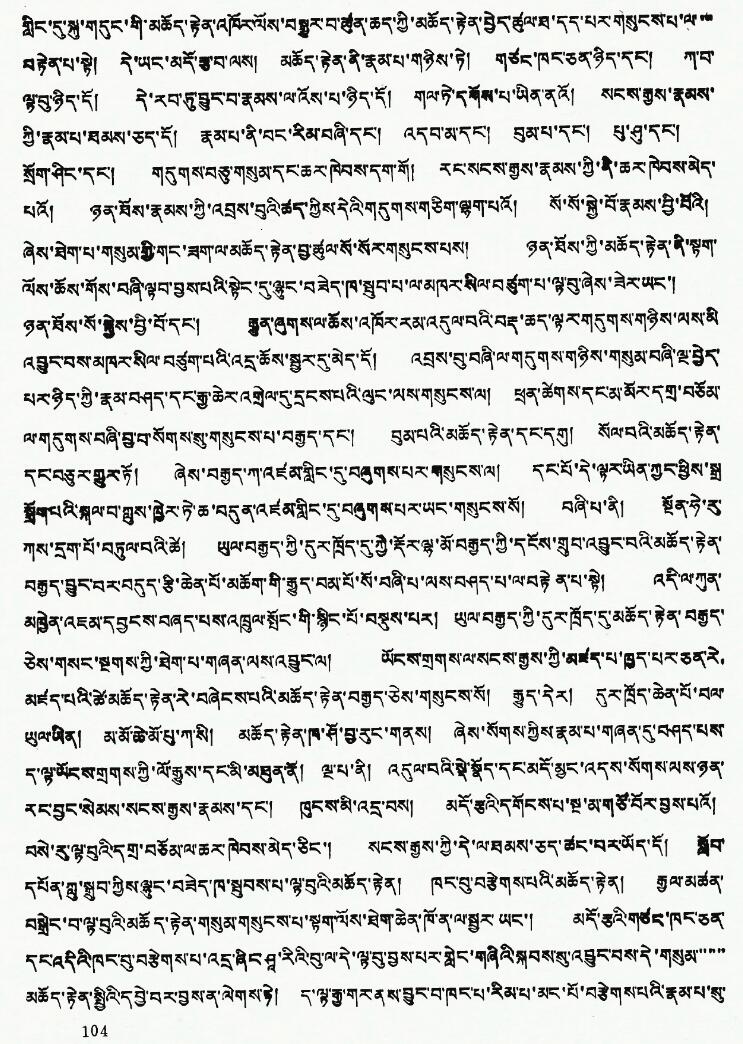 གླིང་དུ་སྐུ་གདུང་གི་མཆོད་རྟེན་འཁོར་ལོས་བསྒྱུར་བ་ཚུན་ཆད་ཀྱི་མཆོད་རྟེན་བྱེད་ཚུལ་ཐ་དད་པར་གསུངས་པ་ལ་
བརྟེན་པ་སྟེ། དེ་ཡང་མདོ་རྩ་བ་ལས། མཆོད་རྟེན་ནི་རྣམ་པ་གཉིས་ཏེ། གཙང་ཁང་ཅན་ཉིད་དང་། ཀ་བ་
ལྟ་བུ་ཉིད་དོ། དེ་རབ་ཏུ་བྱུང་བ་རྣམས་ལ་འོས་པ་ཉིད་དོ། གལ་ཏེ་དགོས་པ་ཡིན་ནའོ། སངས་རྒྱས་རྣམས་
ཀྱི་རྣམ་པ་ཐམས་ཅད་དོ། རྣམ་པ་ནི་བང་རིམ་བཞི་དང་། འདབ་མ་དང་། བུམ་པ་དང་། པུ་ཤུ་དང་།
སྲོག་ཤིང་དང་། གདུགས་བཅུ་གསུམ་དང་ཆར་ཁེབས་དག་གོ། རང་སངས་རྒྱས་རྣམས་ཀྱི་ནི་ཆར་ཁེབས་མེད་
པའོ། ཉན་ཐོས་རྣམས་ཀྱི་འབྲས་བུའི་ཚད་ཀྱིས་དེའི་གདུགས་གཅིག་ལྷག་པའོ། སོ་སོ་སྐྱེ་བོ་རྣམས་བྱི་བོའི།
ཞེས་ཐེག་པ་གསུམ་གྱི་གང་ཟག་ལ་མཆོད་རྟེན་བྱ་ཚུལ་སོ་སོར་གསུངས་པས། ཉན་ཐོས་ཀྱི་མཆོད་རྟེན་ནི་སྟག་
ལོས་ཆོས་གོས་བཞི་ལྟབ་བྱས་པའི་སྟེང་དུ་ལྷུང་བཟེད་ཁ་སྦུབ་པ་ལ་མཁར་སིལ་བཙུག་པ་ལྟ་བུ་ཞེས་ཟེར་ཡང་།
ཉན་ཐོས་སོ་སྐྱེས་བྱི་བོ་དང་། རྒྱུན་ཞུགས་ལ་ཆོས་འཁོར་རམ་འདུལ་བའི་བརྡ་ཆད་ལྟར་གདུགས་གཉིས་ལས་མི་
འབྱུང་བས་མཁར་སིལ་བཙུག་པའི་འདྲ་ཆོས་སྦྱར་དུ་མེད་དོ། འབྲས་བུ་བཞི་ལ་གདུགས་གཉིས་གསུམ་བཞི་ལྔ་བྱེད་
པར་ཉིད་ཀྱི་རྣམ་བཤད་དང་རྒྱ་ཆེར་འགྲེལ་དུ་དྲངས་པའི་ལུང་ལས་གསུངས་ལ། ཕྲན་ཚེགས་དང་མ་མོར་དགྲ་བཅོམ་
ལ་གདུགས་བཞི་བྱ་བ་སོགས་སུ་གསུངས་པ་བརྒྱད་དང་། བུམ་པའི་མཆོད་རྟེན་དང་དགུ། སོལ་བའི་མཆོད་རྟེན་
དང་བཅུར་གྱུར་ཏོ། ཞེས་བརྒྱད་ཀ་འཛམ་གླིང་དུ་བཞུགས་པར་གསུངས་ལ། དང་པོ་དེ་ལྟར་ཡིན་ཀྱང་ཕྱིས་སྒྲ་
སྒྲོགས་པའི་སྐལ་བ་ཀླུས་ཁྱེར་ཏེ་ཆ་བདུན་འཛམ་གླིང་དུ་བཞུགས་པར་ཡང་གསུངས་སོ། བཞི་པ་ནི། སྔོན་ཧེ་རུ་
ཀས་དྲག་པོ་བཏུལ་བའི་ཚེ། ཡུལ་བརྒྱད་ཀྱི་དུར་ཁྲོད་དུ་ཀྱཻ་རྡོར་ལྷ་མོ་བརྒྱད་ཀྱི་དངོས་གྲུབ་འབྱུང་བའི་མཆོད་རྟེན་
བརྒྱད་བྱུང་བར་བདུད་རྩི་ཆེན་པོ་མཆོག་གི་རྒྱུད་བམ་པོ་སོ་བཞི་པ་ལས་བཤད་པ་ལ་བརྟེ ན་པ་སྟེ། འདི་ལ་ཀུན་
མཁྱེན་འཇམ་དབྱངས་བཞད་པས་འཁྲུལ་སྤོང་གི་སྙིང་པོ་བསྡུས་པར། ཡུལ་བརྒྱད་ཀྱི་དུར་ཁྲོད་དུ་མཆོད་རྟེན་བརྒྱད་
ཅེས་གསང་སྔགས་ཀྱི་ཐེག་པ་གཞན་ལས་འབྱུང་ལ། ཡོངས་གྲགས་ལ་སངས་རྒྱས་ཀྱི་མཛད་པ་ཁྱད་པར་ཅན་རེ་
མཛད་པའི་ཚེ་མཆོད་རྟེན་རེ་བཞེངས་པའི་མཆོད་རྟེན་བརྒྱད་ཅེས་གསུངས་སོ། རྒྱུད་དེར། དུར་ཁྲོད་ཆེན་པོ་བལ་
ཡུལ་ཡིན། མ་མོ་ཆེ་མོ་པུ་ཀ་སི། མཆོད་རྟེན་ཁ་ཤོ་བྱ་རུང་གནས། ཞེས་སོགས་ཀྱིས་རྣམ་པ་གཞན་དུ་བཤད་པས་
ད་ལྟ་ཡོངས་གྲགས་ཀྱི་ལོ་རྒྱུས་དང་མི་མཐུན་ནོ། ལྔ་པ་ནི། འདུལ་བའི་སྡེ་སྣོད་དང་མདོ་མྱང་འདས་སོགས་ལས་ཉན་
རང་བྱང་སེམས་སངས་རྒྱས་རྣམས་དང་། ཁུངས་མི་འདྲ་བས། མདོ་རྩའི་དགོངས་པ་སྔ་མ་གཙོ་བོར་བྱས་པའོ།
བསེ་རུ་ལྟ་བུའི་དགྲ་བཅོམ་ལ་ཆར་ཁེབས་མེད་ཅིང་། སངས་རྒྱས་ཀྱི་དེ་ལ་ཐམས་ཅད་ཚང་བར་ཡོད་དོ། སློབ་
དཔོན་ཀླུ་སྒྲུབ་ཀྱིས་ལྷུང་བཟེད་ཁ་སྦུབས་པ་ལྟ་བུའི་མཆོད་རྟེན། ཁང་བུ་བརྩེགས་པའི་མཆོད་རྟེན། རྒྱལ་མཚན་
བསྒྲེང་བ་ལྟ་བུའི་མཆོ ད་རྟེན་གསུམ་གསུངས་པ་སྟག་ལོས་ཐེག་ཆེན་ཁོ་ན་ལ་སྦྱར་ཡང་། མདོ་རྩའི་གཙང་ཁང་ཅན་
དང་འདིའི་ཁང་བུ་བརྩེགས་པ་འདྲ་ཞིང་ཤཱ་རིའི་བུ་ལ་དེ་ལྟ་བུ་བྱས་པར་གླེང་གཞིའི་སྐབས་སུ་འབྱུང་བས་དེ་གསུམ་
མཆོད་རྟེན་སྤྱིའི་དབྱེ་བར་བྱས་ན་ལེགས་ཏེ། ད་ལྟ་རྒྱ་གར་ནས་བྱུང་བ་ཁང་པ་རིམ་པ་མང་པོ་བརྩེགས་པའི་རྣམ་པ་སྤྲ་
104